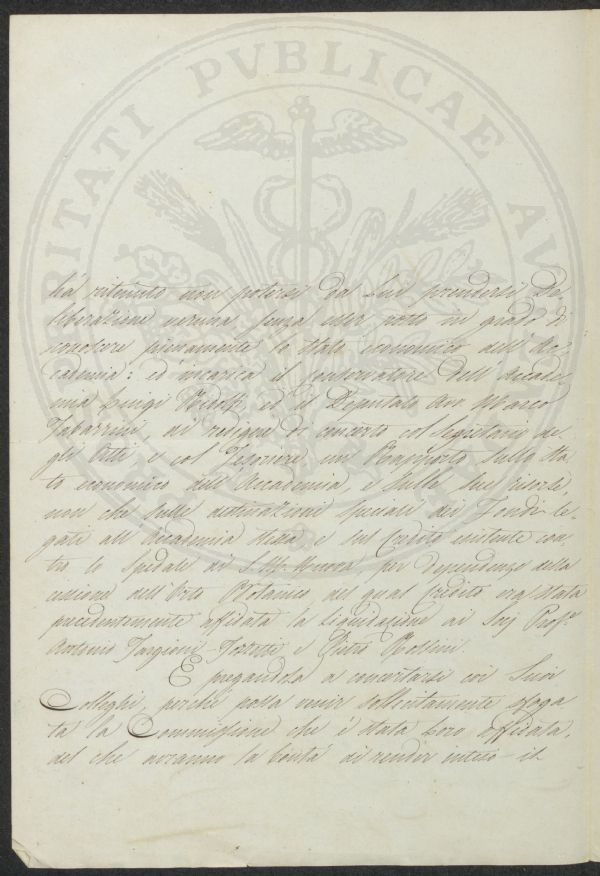 PROSPERITATI PVBLICAE AVGENDAE
ha ritenuto non potersi da Lui prendersi De-
liberazione veruna senza esser posto in grado di
conoscere pienamente lo stato economico dell'Ac-
cademia: ed incarica il Conservatore dell'Accade-
mia Luigi Ridolfi ed il Deputato Avv Marco
Tabarrini di redigere di concerto col Segretario de-
gli Atti e col Tesoriere un Rapporto sullo Sta-
to economico dell'Accademia, e sulle sue risorse,
non che sulle destinazioni speciali dei Fondi le-
gati all'Accademia stessa e sul Credito esistente con-
tro lo Spedale di S. M. Nuova, per dependenze della
cessione dell'Orto Botanico, del qual Credito era stata
precedentemente affidata la liquidazione ai Sigg Profri
Antonio Targioni-Tozzetti e Pietro
E pregandola a concertarsi coi Suoi
Colleghi, perché possa venir sollecitamente sfoga-
ta la Commissione che è stata Loro affidata,
del che avranno la bontà di render inteso il